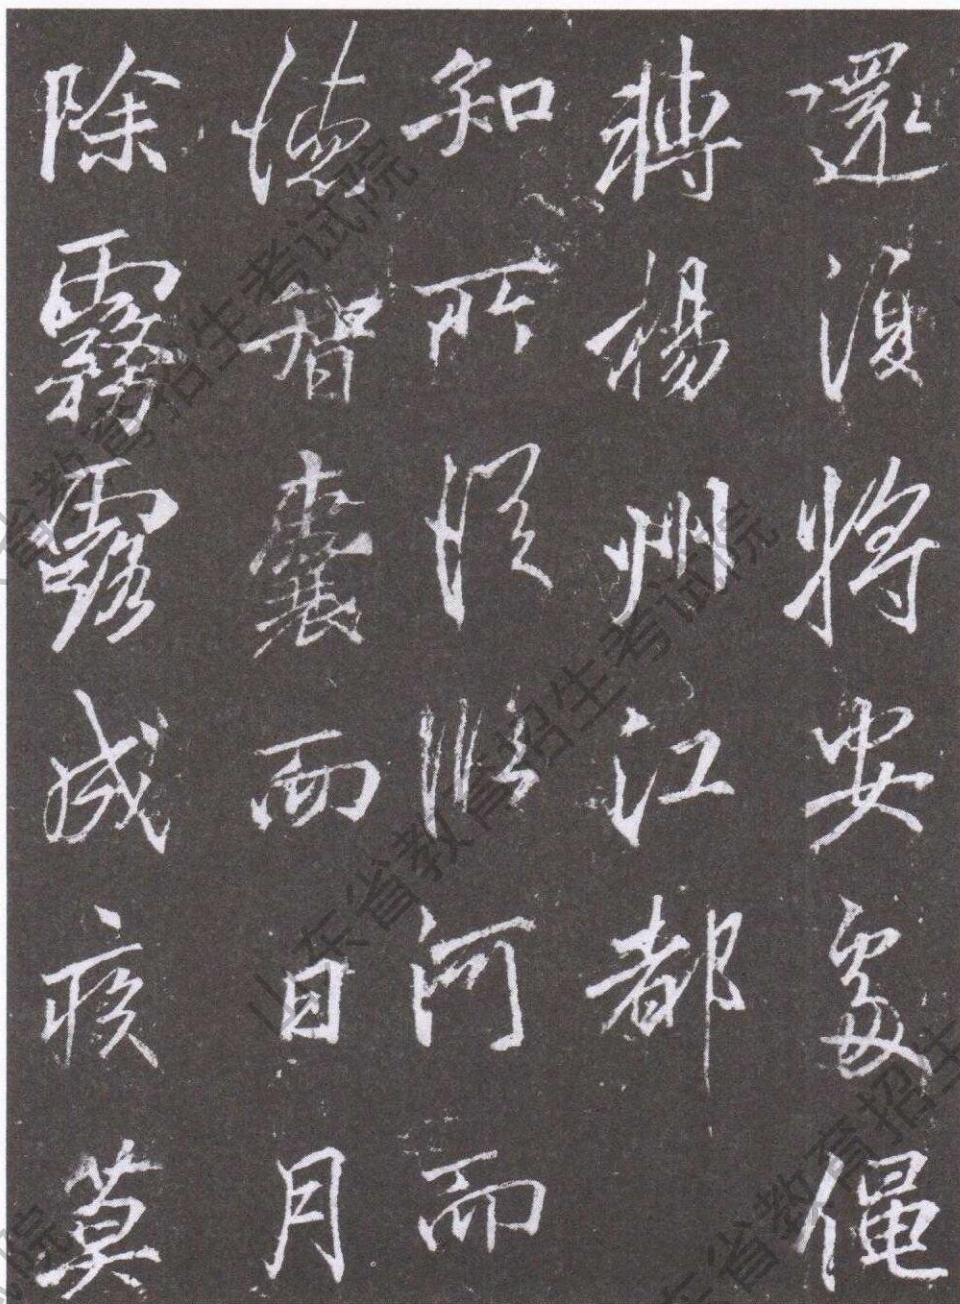 還復將安處僶
轉揚州江都
知所從臨河而
德智囊而日月
除霧露成疾莫
山东省教育招生考试院